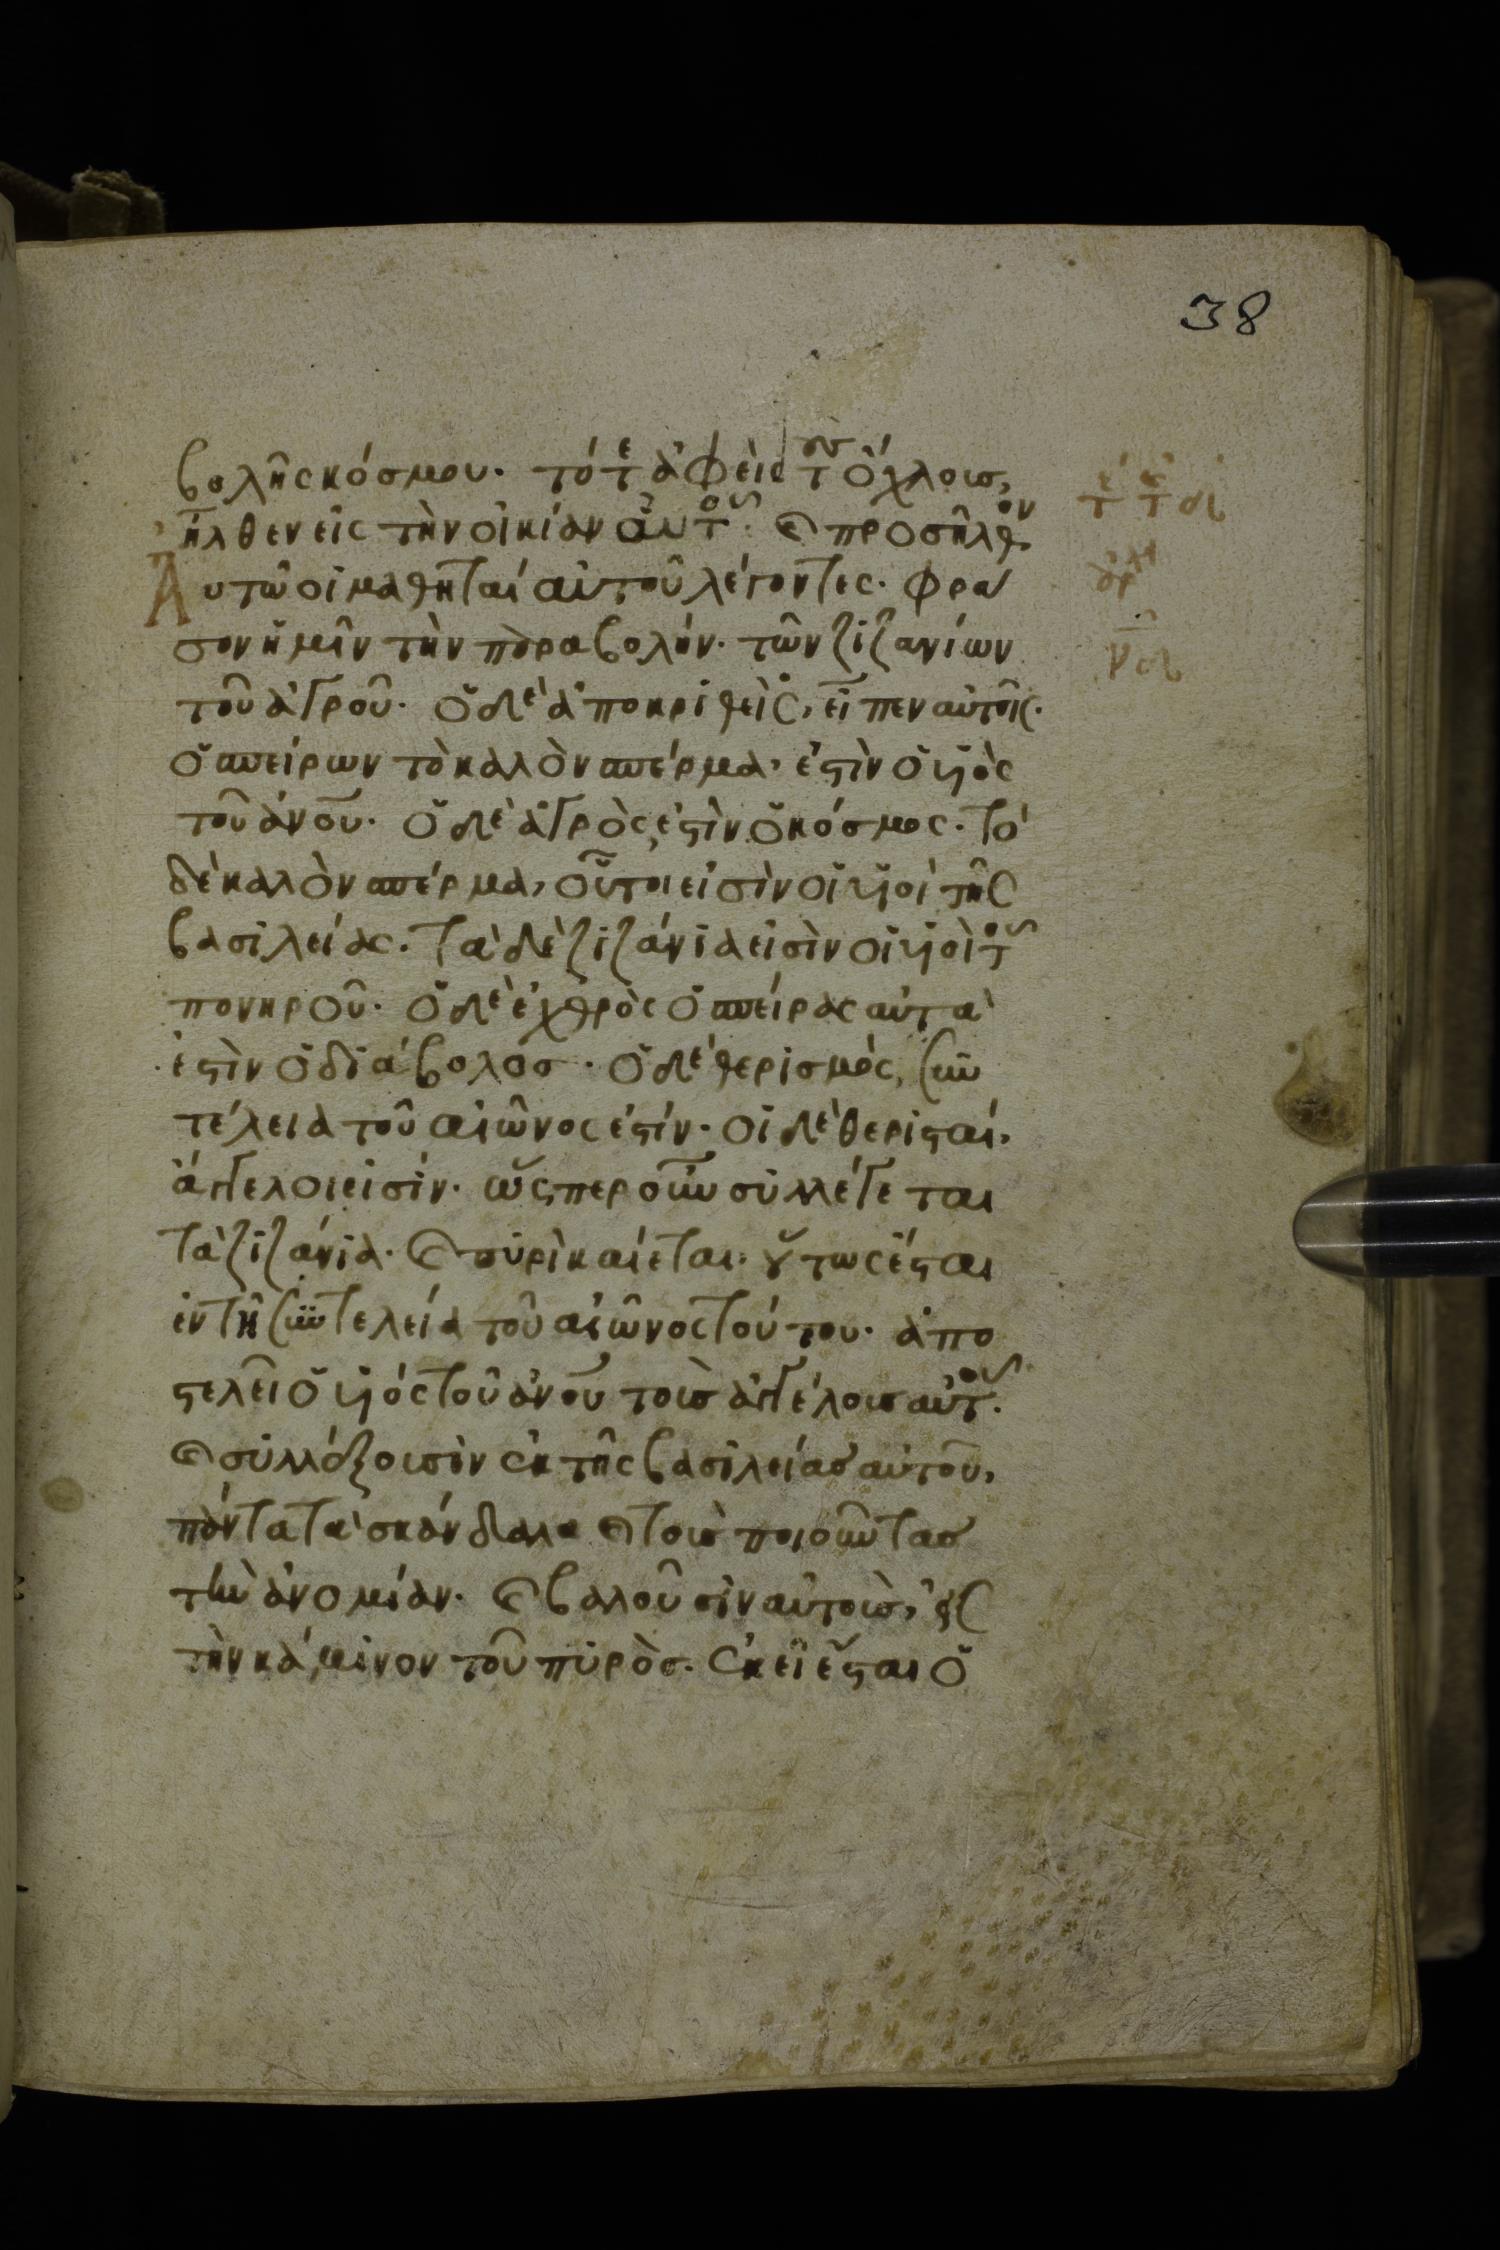 38
βολῆς κόσμου. τότε ἀφεὶς τοὺς ὄχλους,
ἦλθεν εἰς τὴν οἰκίαν αὐτοῦ. καὶ προσῆλθον
Αυτῶ οἱ μαθηταί αὐτοῦ λέγοντες. φρά
σον ἡμῖν τὴν παραβολήν. τῶν ζιζανίων
τοῦ ἀγροῦ. ὁ δὲ ἀποκριθεὶς, εἶπεν αὐτοῖς.
ὁ σπείρων τὸ καλὸν σπέρμα, ἐστὶν ὁ υἱὸς
τοῦ ἀνου. ὁ δὲ ἀγρὸς, ἐστὶν ὁ κόσμος. τὸ
δὲ καλὸν σπέρμα, οὗτοι εἰσὶν οἱ υἱοὶ τῆς
βασιλείας. τὰ δὲ ζιζάνια εἰσὶν οἱ υἱοὶ τοῦ
πονηροῦ. ὁ δὲ ἐχθρὸς ὁ σπείρας αὐτὰ
ἐστὶν ὁ διάβολος. ὁ δὲ θερισμὸς, συν
τέλεια τοῦ αἰῶνος ἐστίν. οἱ δὲ θερισταί,
ἄγγελοι εἰσίν. ὥσπερ οὖν συλλέγεται
τὰ ζιζάνια. καὶ πυρὶ καίεται. οὕτως ἔσται
ἐν τῇ συντελεία τοῦ αἰῶνος τούτου. ἀπο
στελεῖ ὁ υἱός τοῦ ἀνου τοὺς ἀγγέλους αὐτοῦ.
καὶ συλλέξουσιν ἐκ τῆς βασιλείας αὐτοῦ,
πάντα τὰ σκάνδαλα καὶ τοὺς ποιοῦντας
τὴν ἀνομίαν. καὶ βαλοῦσιν αὐτοὺς, εἰς
τὴν κάμινον τοῦ πυρὸς. ἐκεῖ ἔσται ὁ